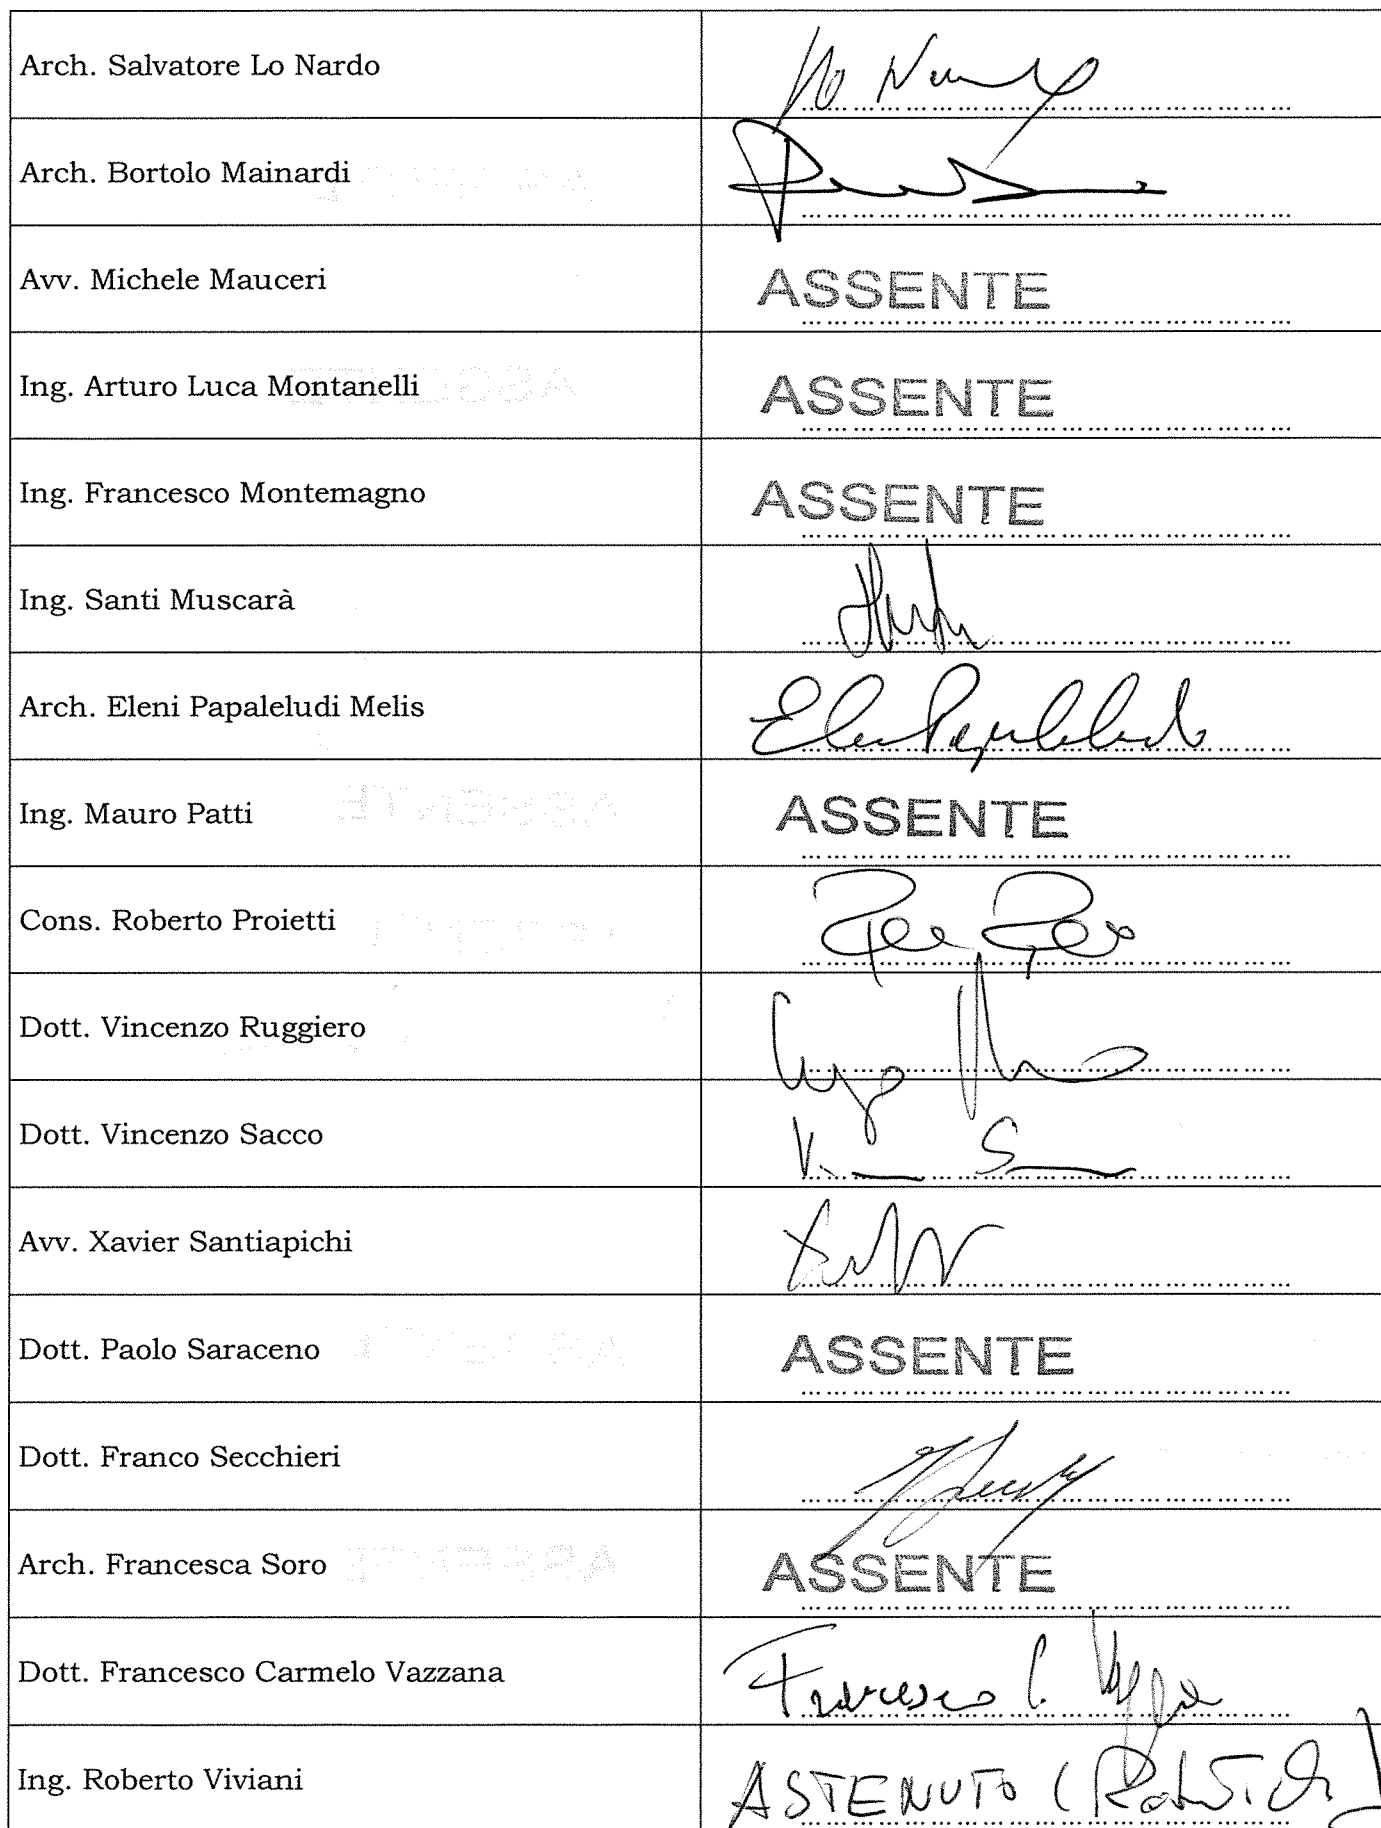 Arch. Salvatore Lo Nardo Lo Nardo
Arch. Bortolo Mainardi
Avv. Michele Mauceri ASSENTE
Ing. Arturo Luca Montanelli ASSENTE
Ing. Francesco Montemagno ASSENTE
Ing. Santi Muscarà
Arch. Eleni Papaleludi Melis
Ing. Mauro Patti ASSENTE
Cons. Roberto Proietti
Dott. Vincenzo Ruggiero
Dott. Vincenzo Sacco
Avv. Xavier Santiapichi
Dott. Paolo Saraceno ASSENTE
Dott. Franco Secchieri
Arch. Francesca Soro ASSENTE
Dott. Francesco Carmelo Vazzana Francesco C.
Ing. Roberto Viviani ASTENUTO (